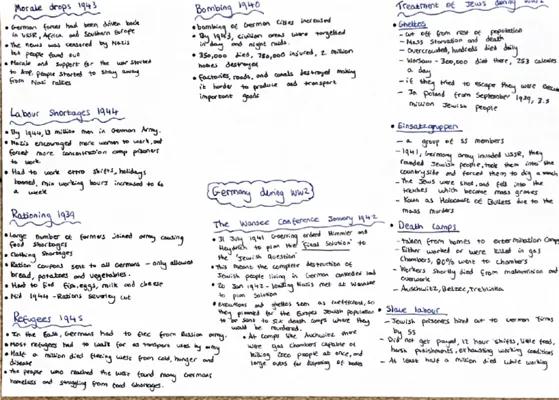 Morale drops 1943
• German forces had been driven back
in USSR, Africa and Southern Europe
• The news was censored by Nazis
but people found out
• Morale and support for the war started
to drop people started to stay away
from Nazi rallies
Labour Shortages 1944
• By 1944, 13 million men in German Army.
• Nazis encouraged more women to work, and
forced more concentration camp prisoners
to work
• Had to work extra shifts, holidays
banned, min working hours increased to 60
a week
Rationing 1939
• Large number of farmers joined army causing
food shortages
• Clothing shortages
• Ration coupons sent to all Germans - only allowed
bread, potatoes and vegetables.
• Had to find fish, eggs, milk and cheese
• Mid 1944 - Rations severely cut
Refugees 1945
• In the East, Germans had to flee from Russian army.
• Most refugees had to walk far as transport used by army
• Half a million died fleeing west from cold, hunger and
disease
• The people who reached the west found many Germans
homeless and struggling from food shortages.
Bombing 1940
• bombing of German cities increased
• By 1943, civilian areas were targetted
in day and night raids.
• 350,000 died, 780,000 injured, 2 million
homes destroyed
• Factories, roads, and canals destroyed making
it harder to produce and transport
important goods
Germany during WW2
The Wansee Conference January 1942
• 31 July 1941 Goering ordered Himmler and
Heydrich to plan the 'Final Solution' to
the 'Jewish Question'
• This means the complete destruction of
Jewish people living in German controlled land
• 20 Jan 1942 - leading Nazis met at Wansee
to plan solution
• Executions and ghettos seen as inefficient, so
they planned for the Europe Jewish population
to be sent to six death camps where they
would be murdered.
• At camps like Auschwitz there
were gas chambers capable of
killing 2000 people at once, and
large ovens for disposing of bodies
Treatment of Jews during WW2
• Ghettos
- cut off from rest of population
- Mass starvation and death
- Overcrowded, hundreds died daily
- Warsaw - 300,000 died there, 253 calories
a day
- if they tried to escape they were
- In Poland from September 1939, 3.3
million Jewish people
• Einsatzgruppen
- a group of SS members
- 1941, Germany army invaded USSR, they
rounded Jewish people, took them into the
countryside and forced them to dig a trench
- The Jews were shot, and fell into the
trenches which became mass graves
- Known as Holocaust of Bullets due to the
mass murders
• Death Camps
- Taken from homes to extermination camps
- Either worked or were killed in gas
chambers, 80% went to chambers
- Workers shortly died from malnutrition and
overwork
- Auschwitz, Belzec, Treblinka
• Slave labour
- Jewish prisoners hired out to German firms
by SS
- Did not get payed, 12 hour shifts, little food,
harsh punishments, exhausting working conditions
- At least half a million died while working